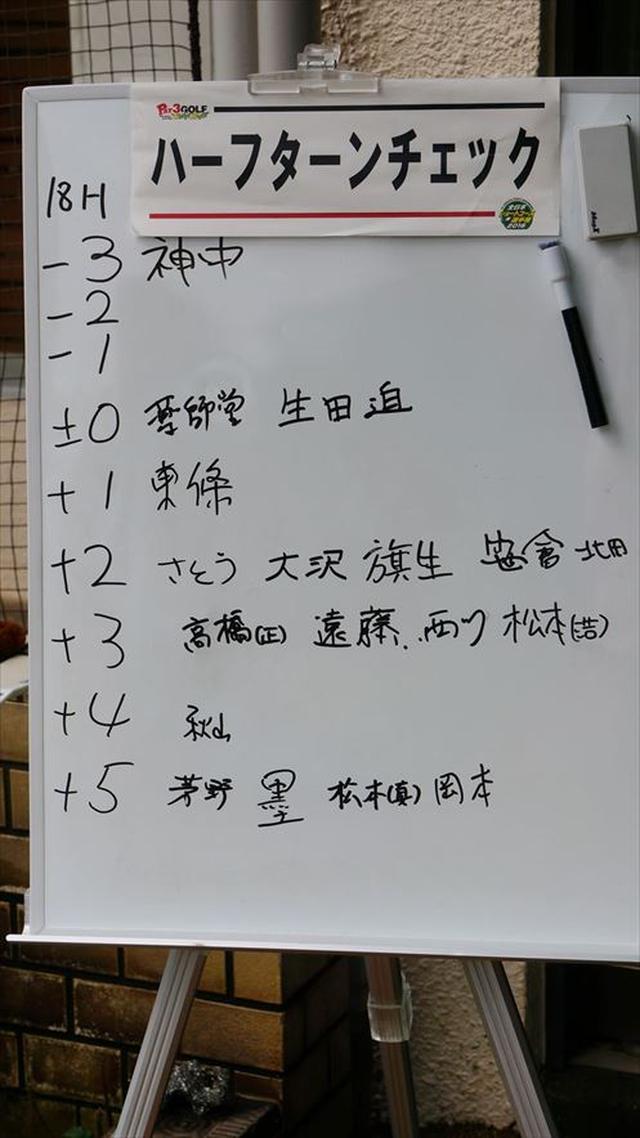 Par3GOLF
ハーフターンチェック
全日本
選手権
2016
18H
-3 神中
-2
-1
±0 薬師堂 生田目
+1 東條
+2 さとう 大沢 旗生 笹倉 北田
+3 高橋(正) 遠藤 西川 松本(浩)
+4 秋山
+5 茅野 墨 松本(真) 岡本